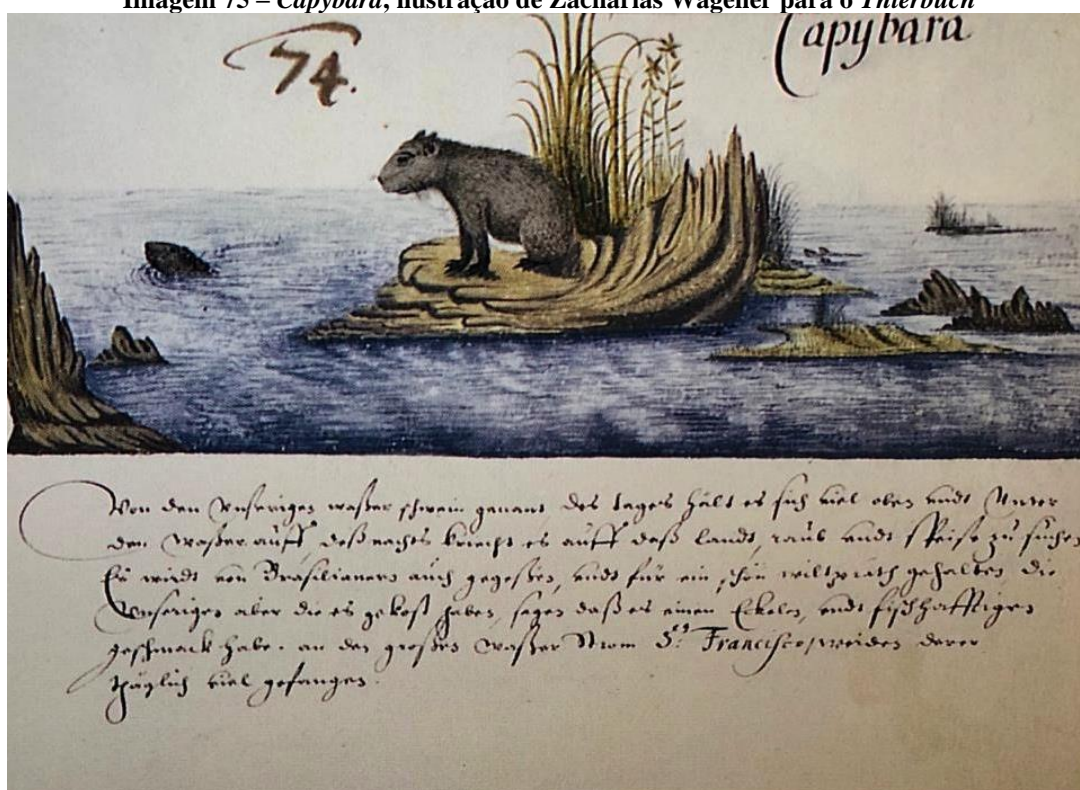 Imagem 75 – Capybara, ilustração de Zacharias Wagener para o Thierbuch
74.
Capybara
Von den Unserigen waßer schwein genant, des tages hält es sich viel oben undt Unter
den Waßer auff, deß nachts kriecht es auff daß landt, raub undt speise zu suchen
Es wirdt von Brasilianern auch gegeßen, undt für ein schön wiltprath gehalten, die
Unserigen aber die es gekost haben, sagen daß es einen Eckelen, undt fischhafftigen
geschmack habe. an den großen Waßer Strom S. Francisco, werden derer
thäglich viel gefangen.